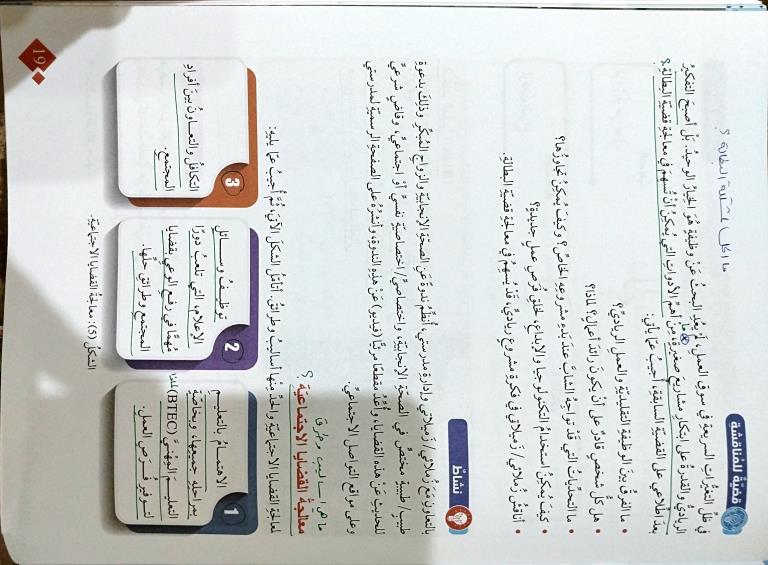 ما الحل لمشكلة البطالة ؟
قضيّة للمُناقشة
في ظلِّ التغيُّراتِ السريعةِ في سوقِ العملِ، لم يعُدِ البحثُ عنْ وظيفةٍ هُوَ الخيارَ الوحيدَ، بلْ أصبحَ التفكيرُ
الرياديُّ والقدرةُ على ابتكارِ مشاريعَ صغيرةٍ، مِنْ أهمِّ الأدواتِ التي يُمكنُ أنْ تُسهِمَ في معالجةِ قضيّةِ البطالةِ؟
بعدَ اطّلاعي على القضيّةِ السابقةِ، أُجيبُ عمّا يأتي:
• ما الفرقُ بينَ الوظيفةِ التقليديّةِ والعملِ الرياديِّ؟
• هل كلُّ شخصٍ قادرٌ على أنْ يكونَ رائدَ أعمالٍ؟ لماذا؟
• ما التحدِّياتُ التي قَدْ تواجهُ الشابَّ عندَ بدءِ مشروعِهِ الخاصِّ؟ وكيفَ يُمكنُ تجاوزُها؟
• كيفَ يُمكنُ استخدامُ التكنولوجيا والإبداعِ، لخلقِ فُرَصِ عملٍ جديدةٍ؟
• أُناقشُ زُملائي/ زميلاتي في فكرةِ مشروعٍ رياديٍّ، قَدْ يُسهِمُ في معالجةِ قضيّةِ البطالةِ.
نشاطٌ
بالتعاونِ معَ زُملائي/ زميلاتي وإدارةِ مدرستي أُنظّمُ ندوةً عنِ الصحّةِ الإنجابيّةِ والزواجِ المُبكِّرِ وذلكَ بدعوةِ
طبيبٍ/ طبيبةٍ مختصٍّ في الصحّةِ الإنجابيّةِ، واختصاصيٍّ/ اختصاصيّةٍ نفسيٍّ أوْ اجتماعيٍّ، وقاضٍ شرعيٍّ
للحديثِ عنْ هذهِ القضايا، وأُعِدُّ مقطعًا مرئيًّا (فيديو) عَنْ هذهِ الندوةِ، وأنشرُهُ على الصفحةِ الرسميّةِ لمدرستي
وعلى مواقعِ التواصلِ الاجتماعيِّ.
ما هي اساليب وطرق
معالجةُ القضايا الاجتماعيّة ؟
لمعالجةِ القضايا الاجتماعيّةِ واحدٌ منها أساليبُ وطرائقُ. أتأمّلُ الشكلَ الآتيَ، ثُمَّ أُجيبُ عمّا يليهِ:
1
الاهتمامُ بالتعليمِ
بمراحلِهِ جميعِها، وبخاصّةٍ
التعليمُ المِهْنيُّ (BTEC)
لتوفيرِ فُرَصِ العملِ.
لماذا
2
توظيفُ وسائلِ
الإعلامِ، التي تلعبُ دورًا
مُهمًّا في رفعِ الوعيِ بقضايا
المجتمعِ وطرائقِ حلِّها.
3
التكافلُ والتعاونُ بينَ أفرادِ
المجتمعِ.
الشكلُ (5): معالجةُ القضايا الاجتماعيّةِ.
19